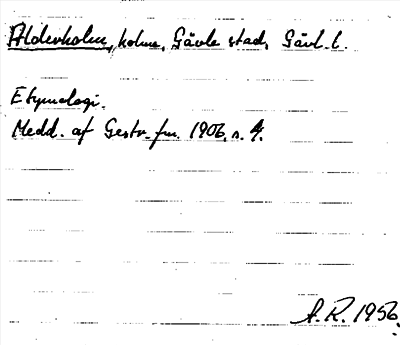 Alderholm, holme, Gävle stad, Gävl. l.
Etymologi.
Medd. af Gestr. fm. 1906, s. 4.
A. R. 1956.